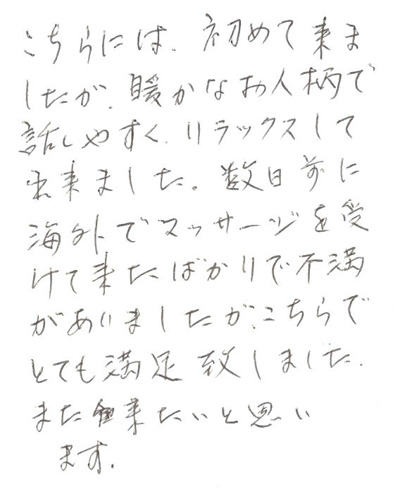 こちらには、初めて来ま
したが、暖かなお人柄で
話しやすく、リラックスして
出来ました。数日前に
海外でマッサージを受
けて来たばかりで不満
がありましたが、こちらで
とても満足致しました。
また来たいと思い
ます。